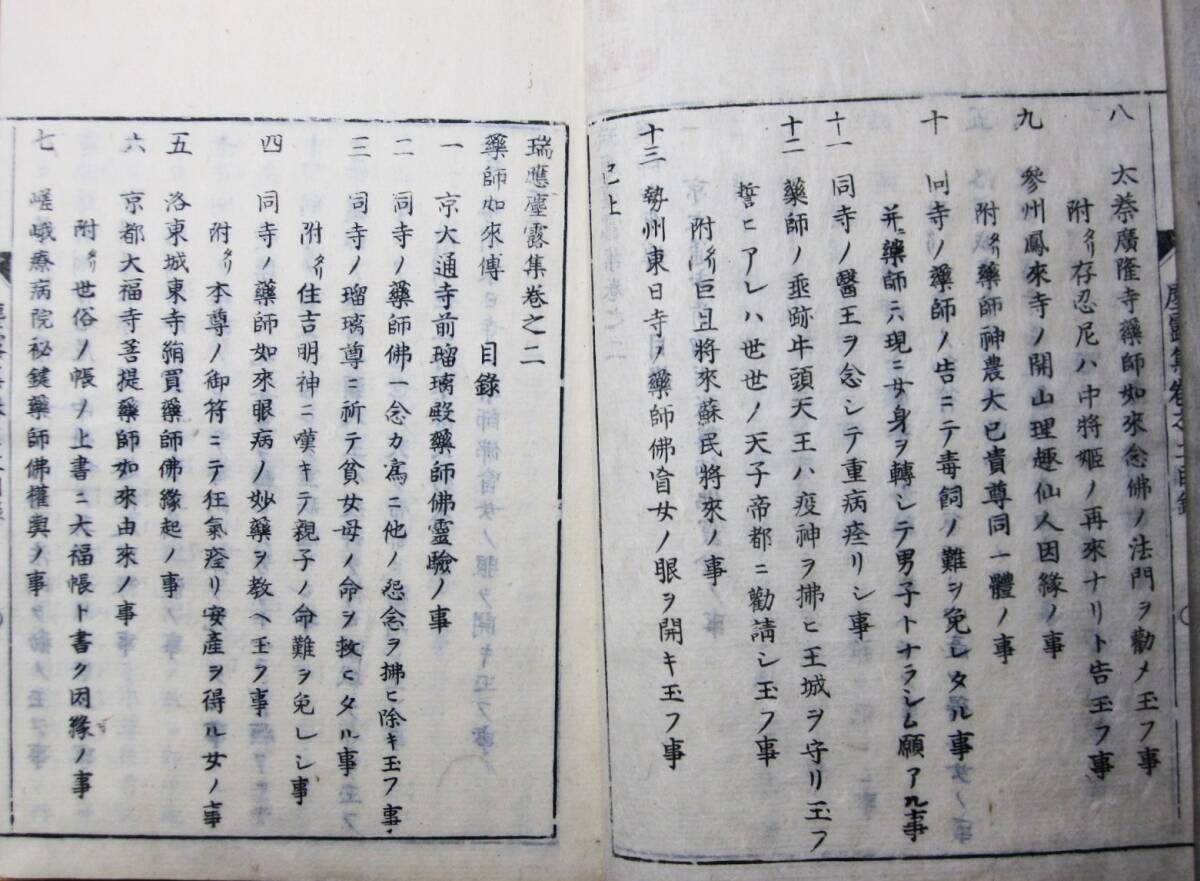 八　太秦廣隆寺藥師如來念佛ノ法門ヲ勸メ玉フ事
附タリ存忍尼ハ中將姬ノ再來ナリト告玉フ事
九　參州鳳來寺ノ開山理趣仙人因緣ノ事
附タリ藥師神農大已貴尊同一體ノ事
十　同寺ノ藥師ノ告ニテ毒飼ノ難ヲ免レタル事
并ニ藥師ニ六現ニ女身ヲ轉シテ男子トナラシム願アル事
十一　同寺ノ醫王ヲ念シテ重病痊リシ事
十二　藥師ノ垂跡牛頭天王ハ疫神ヲ拂ヒ王城ヲ守リ玉フ
誓ヒアレハ世世ノ天子帝都ニ勸請シ玉フ事
附タリ巨旦將來蘇民將來ノ事
十三　勢州東日寺ノ藥師佛盲女ノ眼ヲ開キ玉フ事
已上
瑞應塵露集卷之二
藥師如來傳　目錄
一　京大通寺前瑠璃殿藥師佛靈驗ノ事
二　同寺ノ藥師佛一念カ為ニ他ノ怨念ヲ拂ヒ除キ玉フ事
三　同寺ノ瑠璃尊ニ祈テ貧女母ノ命ヲ救ヒタル事
附タリ住吉明神ニ嘆キテ親子ノ命難ヲ免レシ事
四　同寺ノ藥師如來眼病ノ妙藥ヲ教ヘ玉フ事
附タリ本尊ノ御符ニテ狂氣痊リ安產ヲ得ル女ノ事
五　洛東城東寺獺買藥師佛緣起ノ事
六　京都大福寺菩提藥師如來由來ノ事
附タリ世俗ノ帳ノ上書ニ大福帳ト書ク因緣ノ事
七　嵯峨療病院祕鍵藥師佛權輿ノ事